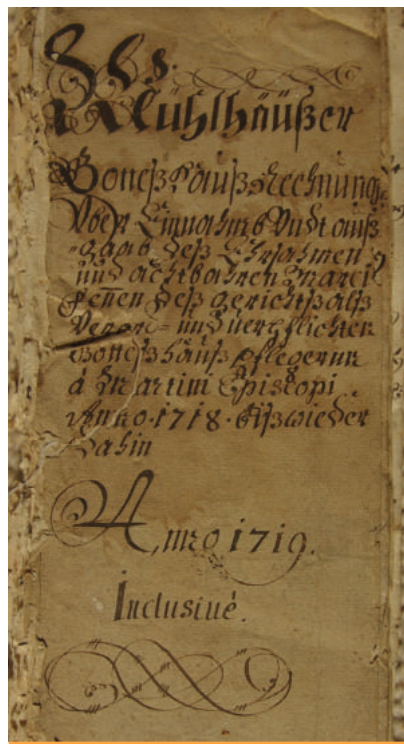 Mühlhäußer
Gotteßhauß Rechnung
Vber Einnahmb Vndt auß-
gaab deß Ehrsahmen
und achtbahren Marci
deß gerichtß alß
Veror- und verpflichten
Gotteßhauß Pflegerun
à Martini Episcopi
Anno 1718. bißwieder
dahin
Anno 1719.
Inclusiué.